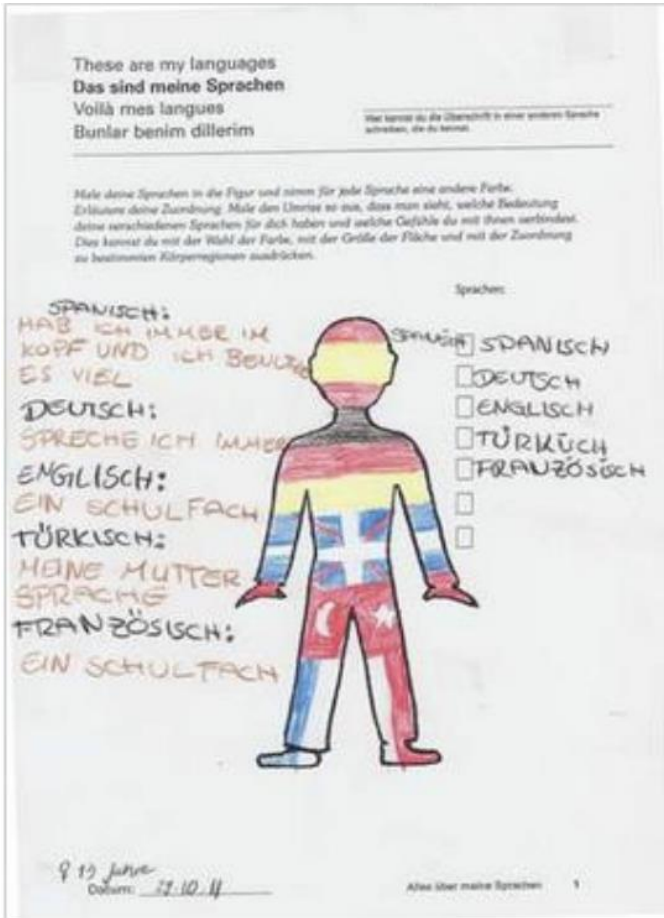 These are my languages
Das sind meine Sprachen
Voilà mes langues
Bunlar benim dillerim
Hier kannst du die Überschrift in einer anderen Sprache
schreiben, die du kennst.
Male deine Sprachen in die Figur und nimm für jede Sprache eine andere Farbe.
Erläutere deine Zuordnung. Male den Umriss so aus, dass man sieht, welche Bedeutung
deine verschiedenen Sprachen für dich haben und welche Gefühle du mit ihnen verbindest.
Dies kannst du mit der Wahl der Farbe, mit der Größe der Fläche und mit der Zuordnung
zu bestimmten Körperregionen ausdrücken.
Sprachen:
SPANISCH:
HAB ICH IMMER IM
KOPF UND ICH
ES VIEL
DEUTSCH:
SPRECHE ICH IMMER
ENGLISCH:
EIN SCHULFACH
TÜRKISCH:
MEINE MUTTER
SPRACHE
FRANZÖSISCH:
EIN SCHULFACH
SPANISCH
DEUTSCH
ENGLISCH
FRANZÖSISCH
Jahre
Datum:
Alles über meine Sprachen 1